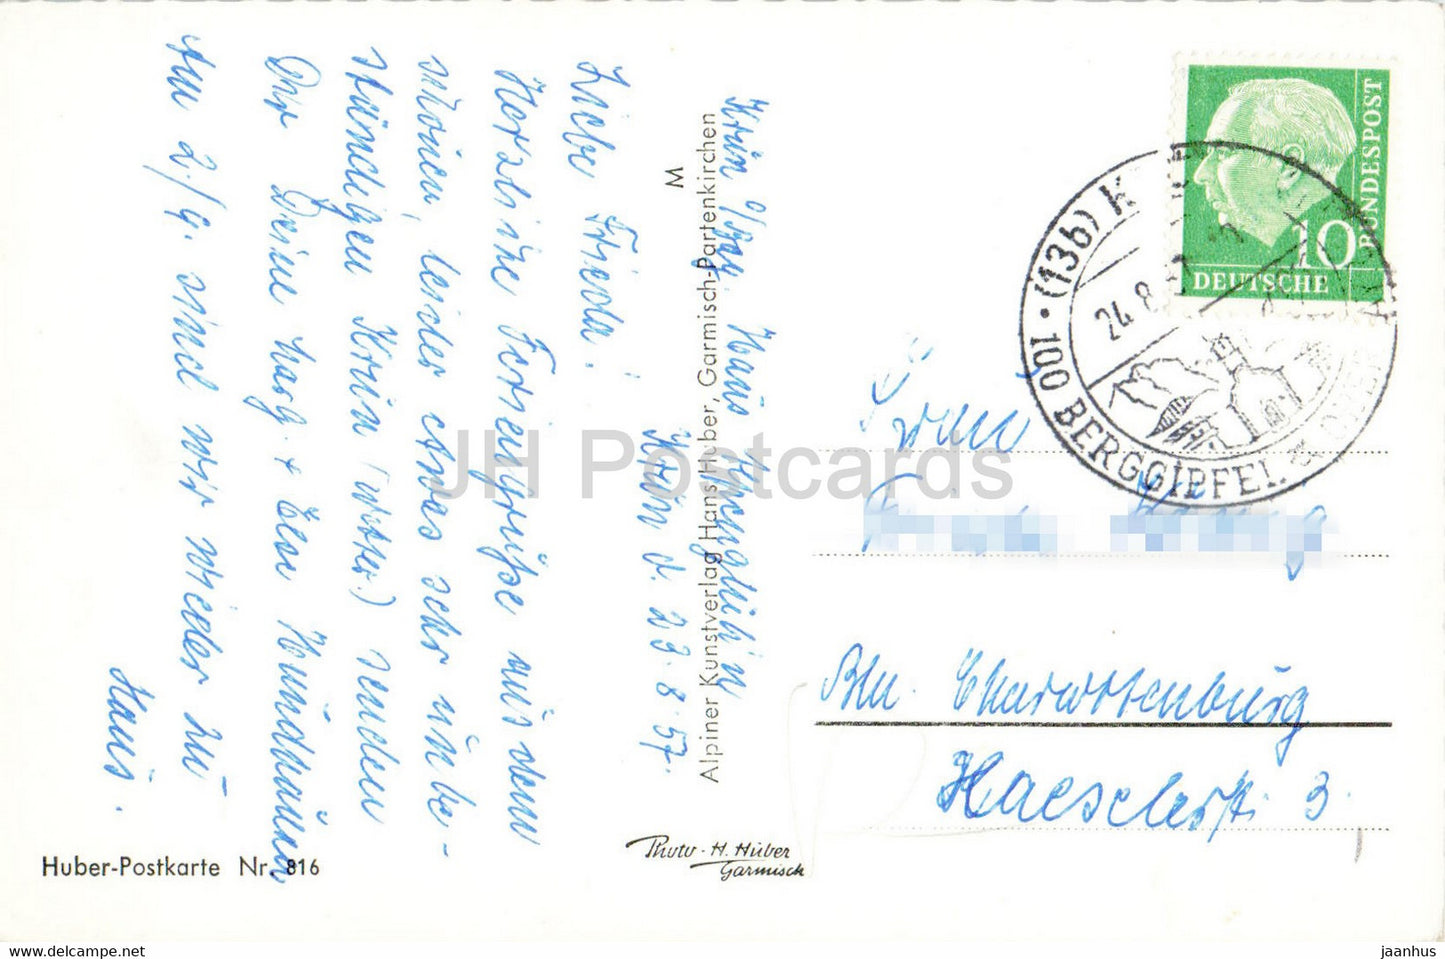 Krün o/Bay. Haus Kreuglhin
Krün d. 23.8.57.
Liebe Frieda!
Herzliche Feriengrüße aus dem
schönen, leider etwas sehr unbe-
ständigen Krün (Wetter.) senden
Dir Deine Marg. + Else Hündhausen
Am 2./9. sind wir wieder zu
Haus.
M
Alpiner Kunstverlag Hans Huber, Garmisch-Partenkirchen
Huber-Postkarte Nr. 816
Photo-H. Huber
Garmisch
DEUTSCHE
BUNDESPOST
10
(13b) K
24.8.
100 BERGGIPFEL
Frau
Bln. Charlottenburg
Haeselerstr. 3.
JH Postcards
https://www.delcampe.net
jaanhus